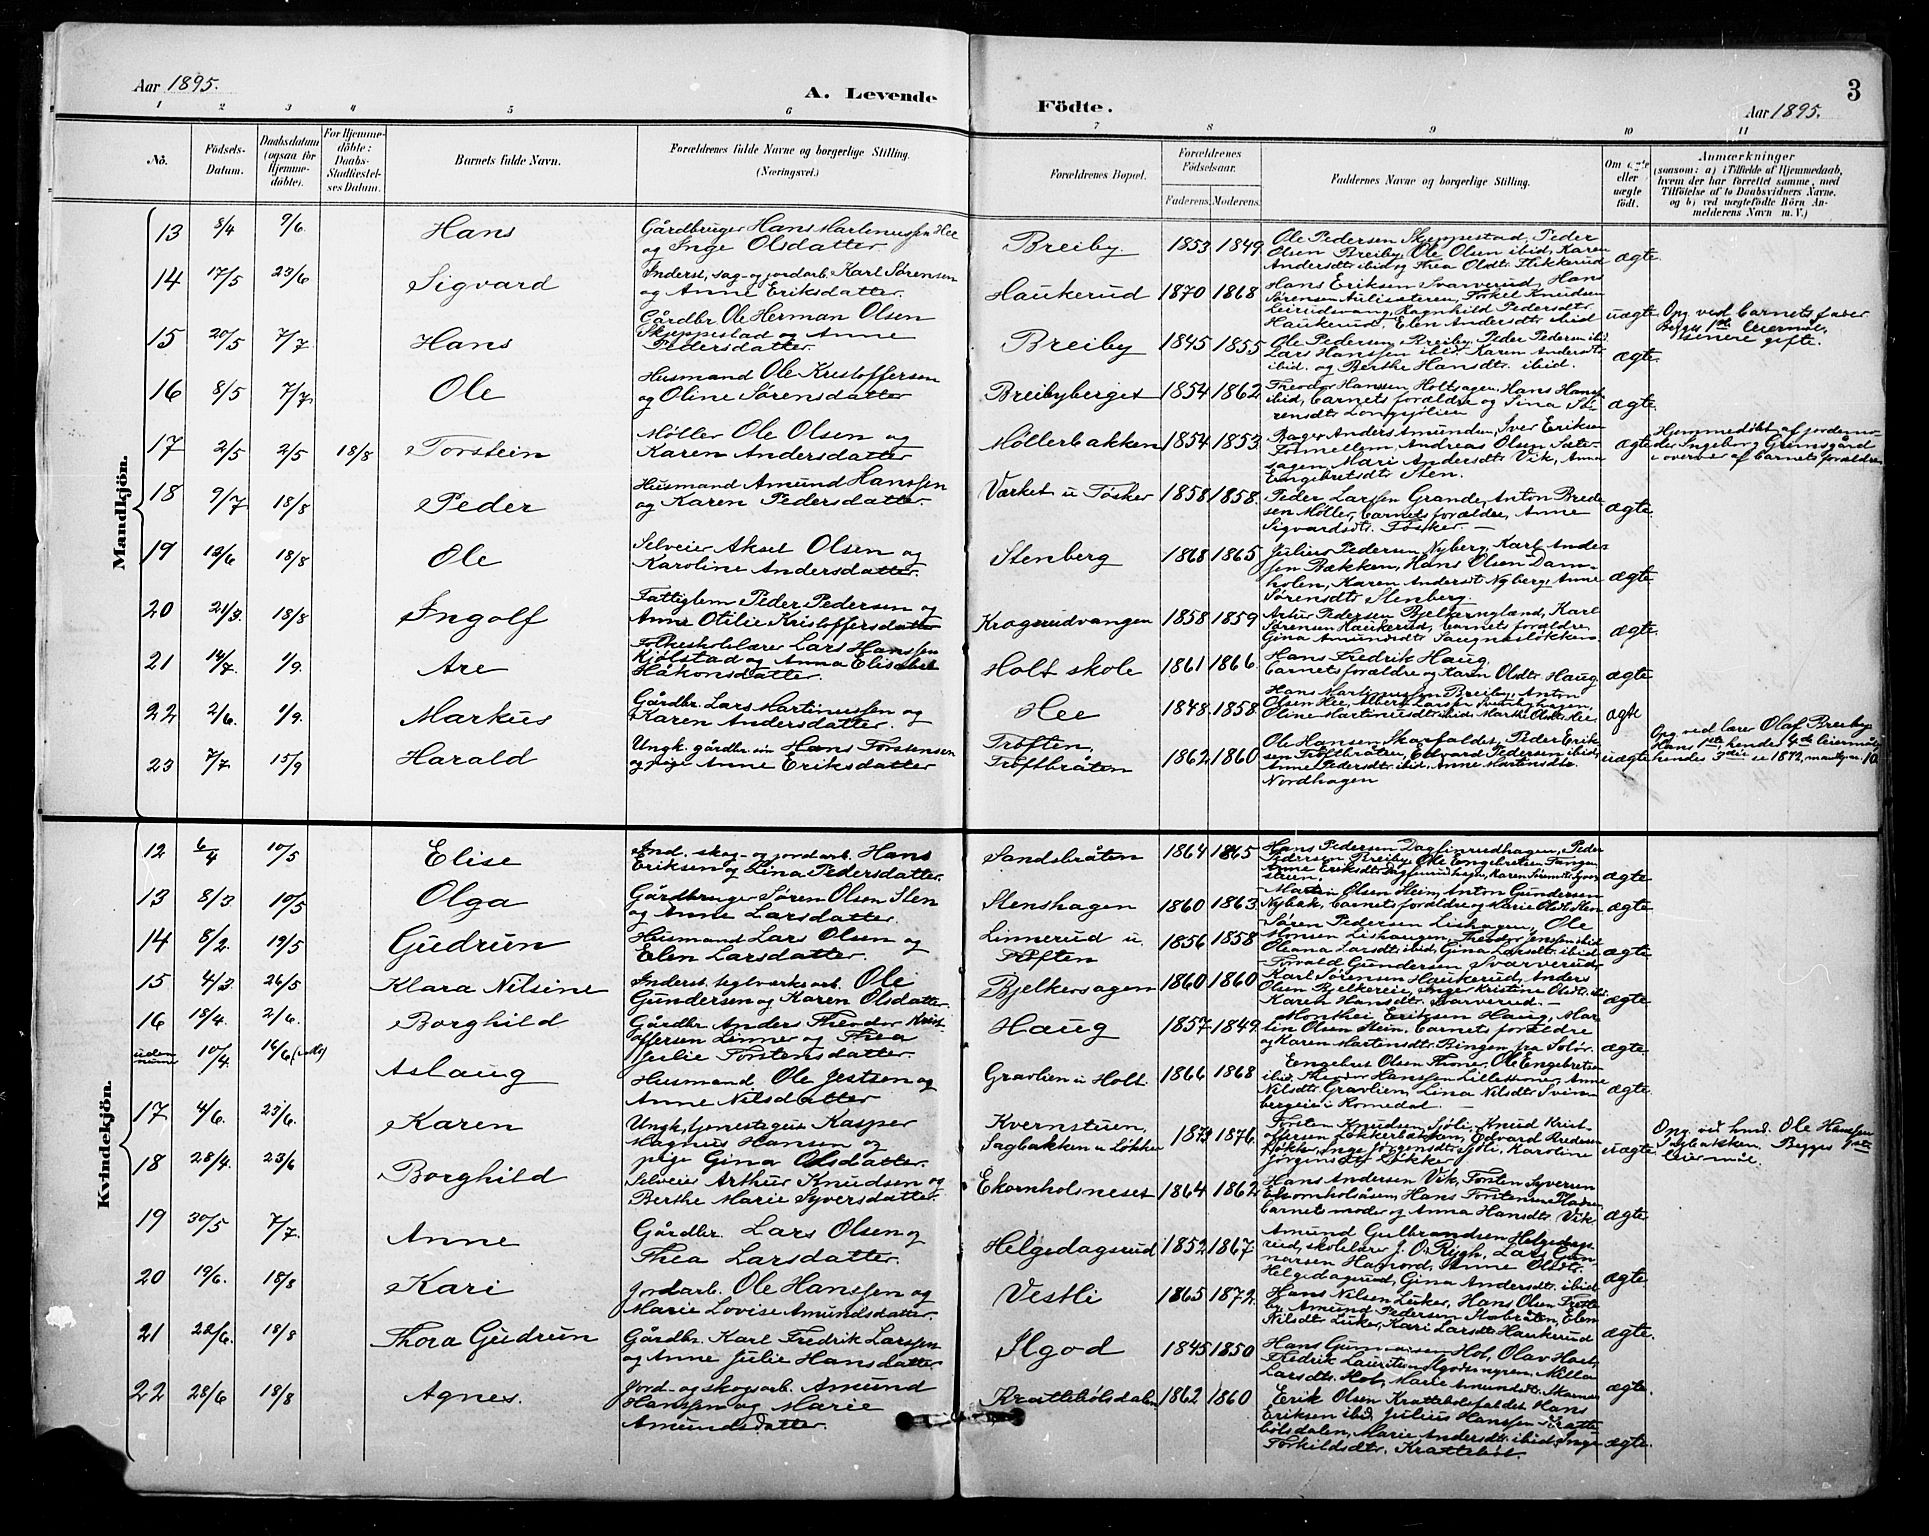 Aar 1895.
A. Levende
Födte.
Aar 1895.
3
1 2 3 4 5 6 7 8 9 10 11
No.
Födsels-Datum.
Daabsdatum (ogsaa for Hjemmedöbte).
For Hjemmedöbte: Daabs-Stadfæstelses Datum.
Barnets fulde Navn.
Forældrenes fulde Navne og borgerlige Stilling. (Næringsvei.)
Forældrenes Bopæl.
Forældrenes Födselsaar.
Faderens. Moderens.
Faddernes Navne og borgerlige Stilling.
Om ægte eller uægte födt.
Anmærkninger
(saasom: a) i Tilfælde af Hjemmedaab, hvem der har forrettet samme, med Tilföielse af to Daabsvidners Navne, og b) ved uægtefödte Börn Anmelderens Navn m. V.)
Mandkjön.
13 8/4 9/6 Hans Gårdbruger Hans Martinussen Hee og Inge Olsdatter Breiby 1853 1849 Ole Pedersen Skeppestad, Peder Olsen Breiby, Ole Olsen ibid, Karen Andersdtr ibid og Thea Olsdtr Flikkerud ægte.
14 17/5 23/6 Sigvard Inderst, sag- og jordarb. Karl Sørensen og Anne Eriksdatter. Haukerud 1870 1868 Hans Eriksen Svarverud, Hans Sørensen Torkel Knudsen Ragnhild Pedersdtr Haukerud, Elen Andersdtr ibid uægte Opg. ved barnets fader Begges 1ste leiermål, senere gifte.
15 20/5 7/7 Hans Gårdbr. Ole Herman Olsen Skjeppestad og Anne Pedersdatter. Breiby 1845 1855 Ole Pedersen Breiby, Peder Pedersen ibid Lars Hanssen ibid, Karen Andersdtr ibid. og Berthe Hansdtr ibid. ægte
16 8/5 7/7 Ole Husmand Ole Kristoffersen og Oline Sørensdatter Breibyberget 1854 1862 Theodor Hanssen Holtsagen, Hans Hanse ibid, barnets forældre og Sina Sørensdtr Longsjølien ægte.
17 2/5 2/5 18/8 Torstein Møller Ole Olsen og Karen Andersdatter Møllerbakken 1854 1853 Bager Anders Amundsen, Iver Eriksen Andreas Olsen Mari Andersdtr Vik, Anna Engebretsdtr Sten. ægte Hjemmedøbt af jordemoder Ingeborg Grimsgård i overvær af barnets forældre
18 9/7 18/8 Peder Husmand Amund Hanssen og Karen Pedersdatter. Værket u Tøsker 1858 1858 Peder Larssen Grande, Anton Bredesen Møller, barnets forældre, Anne Sigvardsdtr. Tøsker. — ægte.
19 12/6 18/8 Ole Selveier Aksel Olsen og Karoline Andersdatter. Stenberg 1868 1865 Julius Pedersen Nyberg, Karl Andersen Bækken, Hans Olsen Damholen, Karen Andersdt Nyberg, Anne Sørensdtr Stenberg. ægte
20 21/3. 18/8 Ingolf Fattiglem Peder Pedersen og Anne Otilie Kristoffersdatter Kragerudvangen 1858 1859 Artur Pedersen Karl Sørensen Haukerud, barnets forældre Gina Amundsdtr ægte.
21 14/7. 1/9. Are Folkeskolelærer Lars Hanssen Kjølstad og Anna Elisabet Håkonsdatter. Holt skole 1861 1866 Hans Fredrik Haug. barnets forældre og Karen Olsdtr. Haug. ægte
22 2/6. 1/9. Markus Gårdbr. Lars Martinussen og Karen Andersdatter. Hee 1848 1858 Hans Martinussen Breiby, Anton Olsen Hee, Albert Larssen Oline Martinusdtr ibid, Marthe Olsdtr Hee ægte
23 7/7 15/9 Harald Ungk. gårdbr. søn Hans Torstensen og pige Anne Eriksdatter Trøften, Trøftbråten 1862 1860 Ole Hansen Skarfaldet, Peder Eriksen Trøftbråten, Edvard Pedersen ibid, Anne Pedersdtr ibid, Anne Martinsdtr. Nordhagen uægte Opg. ved lærer Olaf Breiby Hans 1ste, hendes 4de leiermål hendes 3die se 1892, mandkj. nr. 10
Kvindekjön.
12 6/4 10/5 Elise Ind. skog- og jordarb. Hans Eriksen og Lina Pedersdatter. Sandsbråten 1864 1865 Hans Pedersen Dagfinrudhagen, Peder Pedersen Breiby, Ole Engebretsen Anne Eriksdtr Dagfinrudhagen, Karen ægte
13 8/3 10/5 Olga Gårdbruger Søren Olsen Sten og Anne Larsdatter. Stenshagen 1860 1863 Martin Olsen Stein, Anton Gundersen Nybak, barnets forældre og Marie Olsdtr Sten ægte
14 8/2. 19/5 Gudrun Husmand Lars Olsen og Elen Larsdatter. Linnerud u. Trøften 1856 1858 Søren Pedersen Lishagen, Ole Monsen Lishaugen, Theodor Jensen ibid Oleana Larsdtr ibid, Gina Larsdtr. ibid ægte
15 4/3 26/5 Klara Nilsine Inderst teglværksarb. Ole Gundersen og Karen Olsdatter. Bjelkersagen 1860 1860 Torvald Gundersen Svarverud, Karl Sørensen Haukerud, Anders Olsen Bjelkereie, Inger Kristine Olsdtr ibi Karen Hansdtr. Svarverud. — ægte
16 18/4. 2/6. Borghild Gårdbr. Anders Theodor Kristoffersen Linner og Thea Julie Torstensdatter. Haug 1857 1849 Monthei Eriksen Haug, Martin Olsen Stein, barnets forældre og Karen Martensdtr. Bingen fra Solør. ægte
uden num 10/4. 16/6 Aslaug Husmand Ole Jestsen og Anne Nilsdatter Gravlien u Holt 1866 1868 Engebret Olsen Thone, Ole Engebretse ibid, Theodor Hanssen Lillethone, Anne Nilsdtr. Gravlien, Lina Nilsdtr Svenbergeie i Romedal. — ægte.
17 4/6. 23/6. Karen Ungk. tjenestegut Kasper Magnus Hansen og pige Gina Olsdatter. Kvernstuen, Sagbakken u Løkker 1873 1876 Torsten Knudsen Sjøli, Knud Kristoffersen Løkkerbakken, Edvard Andersen Løkker, Inge Jørgensdtr Sjøli, Karoline Jørgensdtr Løkker uægte Opg. ved husmd. Ole Hanssen Sagbakken, Begges 1ste leiermål.
18 28/4. 23/6 Borghild Selveier Arthur Knudsen og Berthe Marie Syversdatter. Ekornholsneset 1864 1862 Hans Andersen Vik, Torsten Syversen Ekornholsåsen, Hans Torstensen barnets moder og Anna Hansdtr. Vik ægte
19 30/5 7/7. Anne Gårdbr. Lars Olsen og Thea Larsdatter. Helgedagsrud 1852 1867 Amund Gulbrandsen Helgedagsrud, skolelærer J. O. Rygh, Lars Gunnarsen Hanord, Anne Olsdtr. Helgedagsrud, Gina Andersdtr. ibid ægte
20 19/6. 18/8 Kari Jordarb. Ole Hanssen og Marie Lovise Amundsdatter. Vestli 1865 1872 Hans Nilsen Luker, Hans Olsen Amund Pedersen Elen Nilsdtr Luker, Kari Larsdtr Haukerud ægte.
21 22/6. 18/8 Thora Gudrun Gårdbr. Karl Fredrik Larssen og Anne Julie Hansdatter Ilgod 1845 1850 Hans Gunnarsen Hol, Olav Hoel, Fredrik Lauritsen Larsdtr. Hol, Marie Amundsdtr. Skarnes ægte.
22 28/6 18/8 Agnes. Jord- og skogsarb. Amund Hanssen og Marie Amundsdatter. Krattebølsdalen 1862 1860 Erik Olsen Krattebølsfaldet Hans Eriksen ibid Julius Hanssen Krattebølsdalen, Marie Andersdtr. ibid, Inge Torkildsdtr. Krattebøl. ægte.